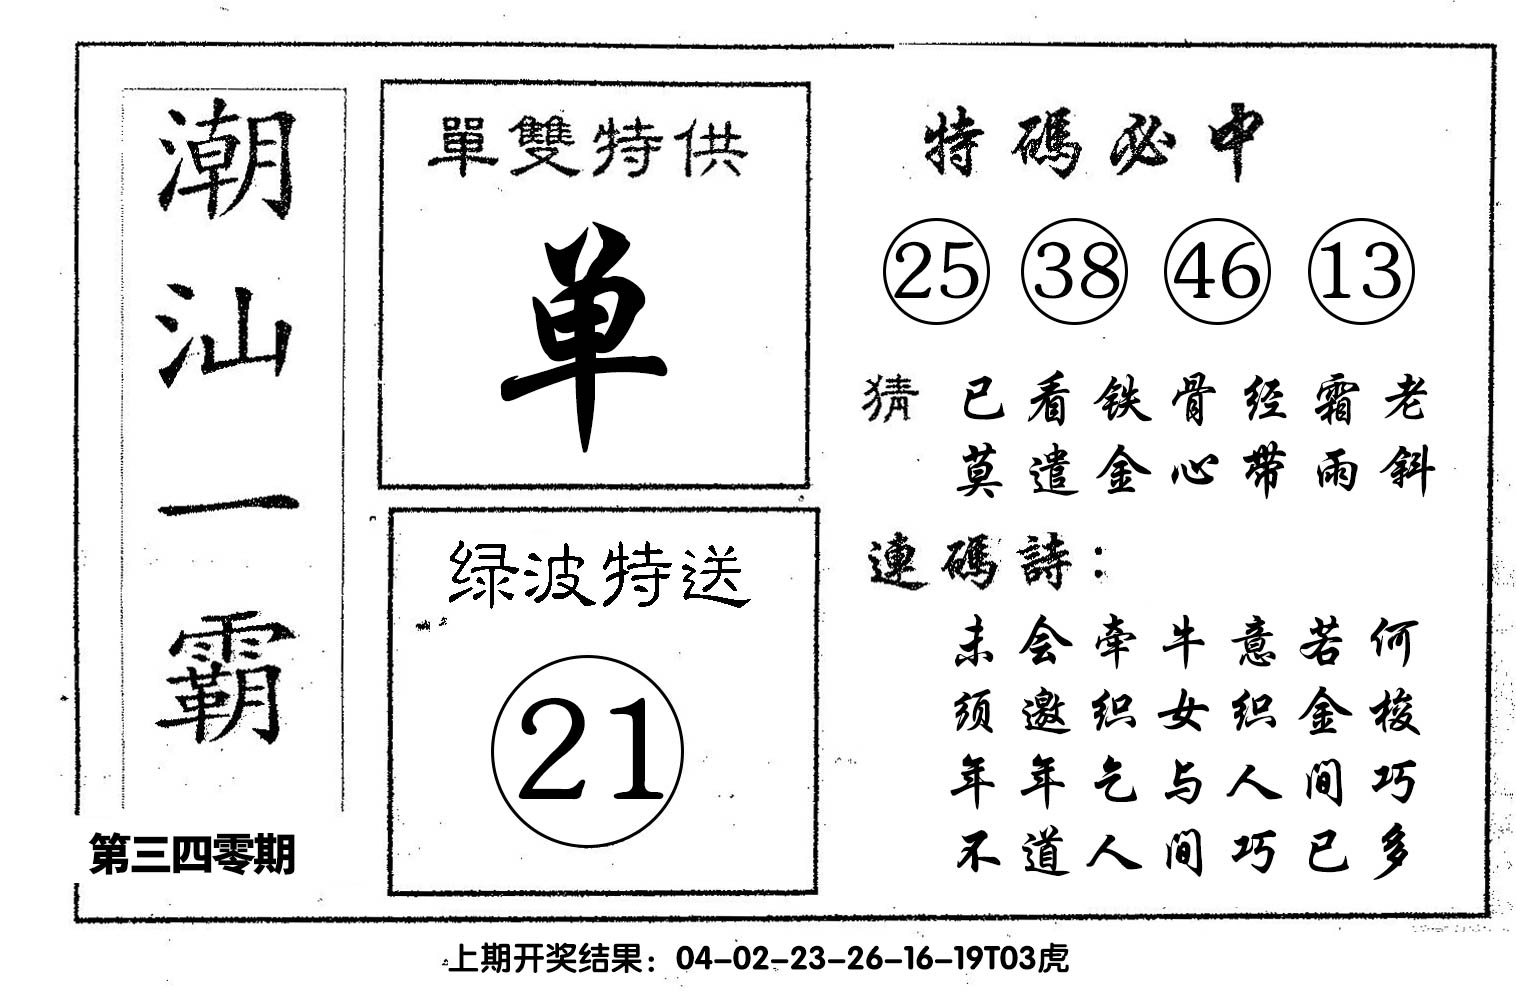 潮汕一霸
第三四零期
單雙特供
单
绿波特送
21
特碼必中
25 38 46 13
猜 已看铁骨经霜老
莫遣金心带雨斜
連碼詩：
未会牵牛意若何
须邀织女织金梭
年年乞与人间巧
不道人间巧已多
上期开奖结果：04-02-23-26-16-19T03虎